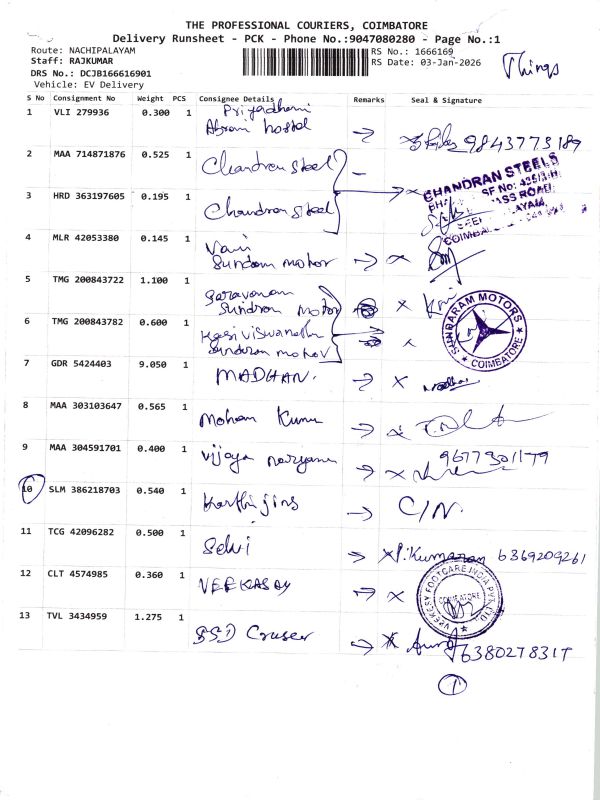 THE PROFESSIONAL COURIERS, COIMBATORE
Delivery Runsheet - PCK - Phone No.:9047080280 - Page No.:1
Route: NACHIPALAYAM
Staff: RAJKUMAR
DRS No.: DCJB166616901
Vehicle: EV Delivery
RS No.: 1666169
RS Date: 03-Jan-2026
Things
S No Consignment No Weight PCS Consignee Details Remarks Seal & Signature
1 VLI 279936 0.300 1 Priyadharni
hostel 9843773189
2 MAA 714871876 0.525 1 Chandran Steel
CHANDRAN STEELS
3 HRD 363197605 0.195 1 Chandran Steel
COIMBATORE
4 MLR 42053380 0.145 1 Vani
Sundram motor
5 TMG 200843722 1.100 1 Saravanan
Sundram motor
6 TMG 200843782 0.600 1 Kasi Viswanathan
Sundram motor
SUNDARAM MOTORS
COIMBATORE
7 GDR 5424403 9.050 1 MADHAN. madhan
8 MAA 303103647 0.565 1 Mohan Kumar
9 MAA 304591701 0.400 1 Vijaya narayanan 9677301179
10 SLM 386218703 0.540 1 Karthi jins C/N.
11 TCG 42096282 0.500 1 Selvi P. Kumaran 6369209261
12 CLT 4574985 0.360 1 VEEKASAY
VEEKESY FOOTCARE INDIA PVT. LTD.
COIMBATORE
13 TVL 3434959 1.275 1 SSD Cruser 6380278317
1